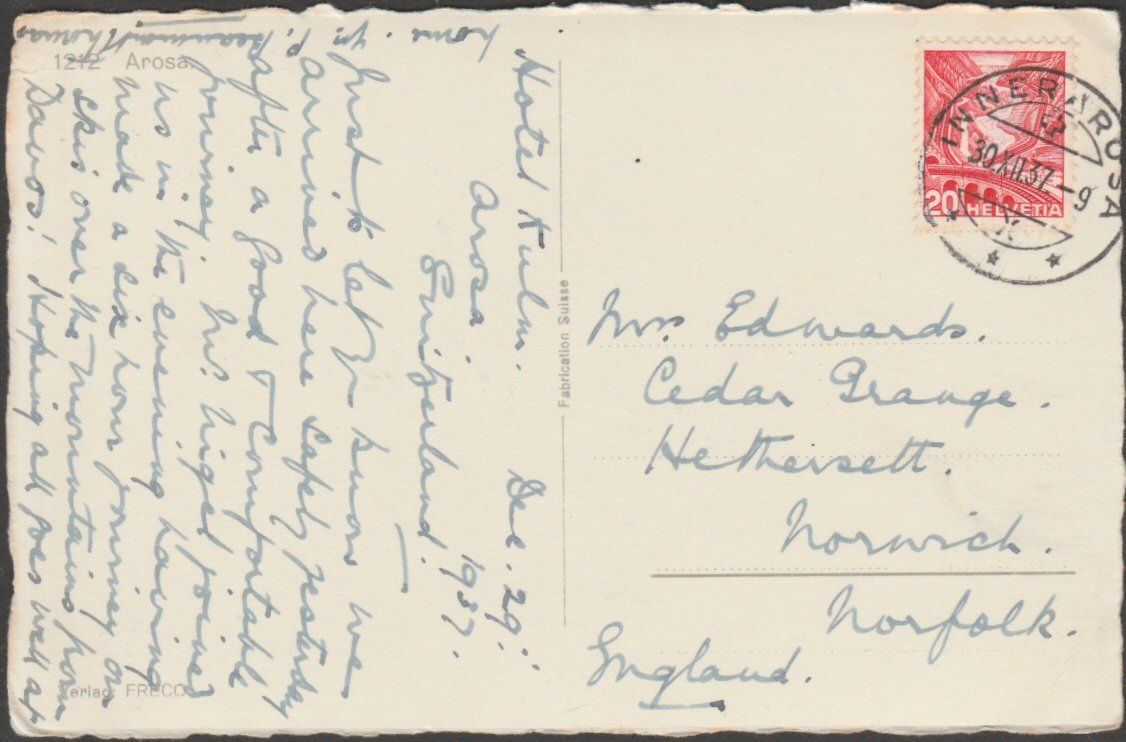 Hotel Kulm. Dec. 29th.
Arosa 1937.
Switzerland.
Just to let you know we
arrived here safely yesterday
after a good & comfortable
journey. Mr. Nigel joined
us in the evening having
made a six hour journey on
skis over the mountains from
Davos! Hoping all goes well at
home. Yrs. P. Beaumont Thomas
1212 Arosa.
Verlag: FRECO
Fabrication Suisse
INNERAROSA
30.XII.37.-9
X
20 HELVETIA
Mrs Edwards.
Cedar Grange.
Hethersett.
Norwich.
Norfolk.
England.